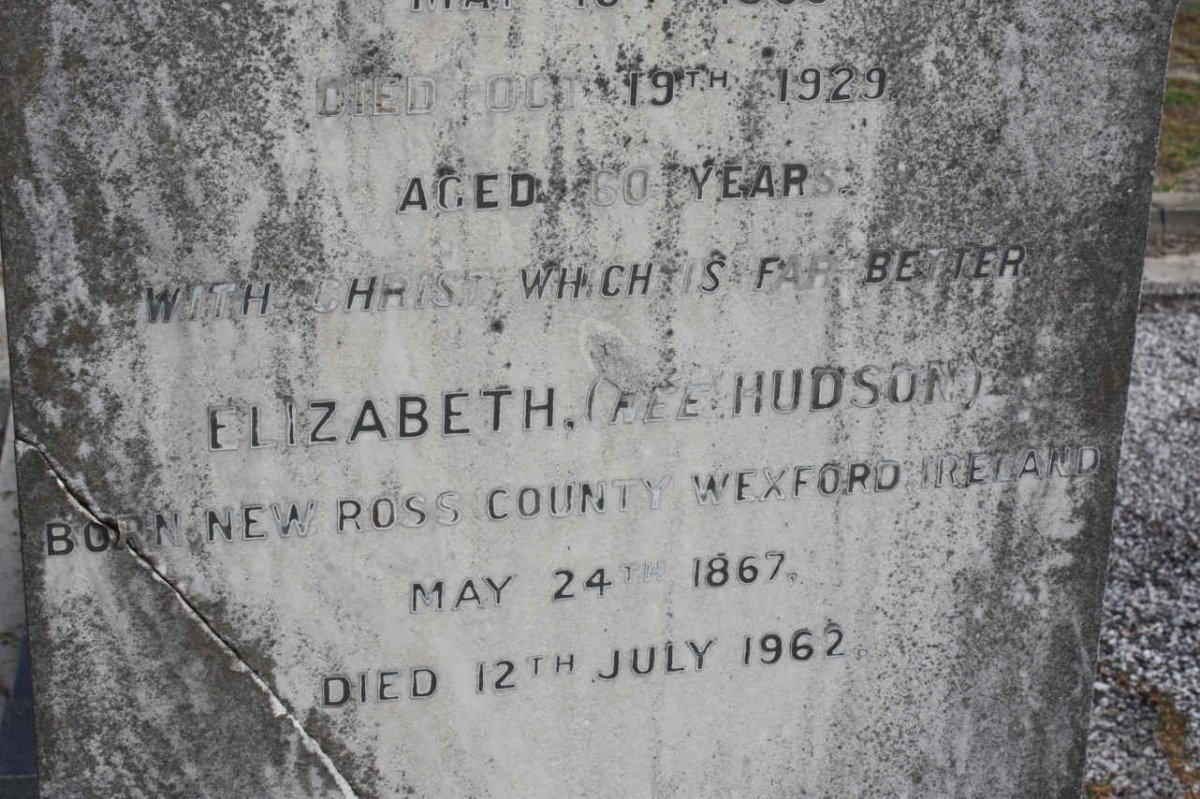 MAY
DIED OCT 19TH 1929
AGED 60 YEARS.
WITH CHRIST WHICH IS FAR BETTER.
ELIZABETH, (NEE HUDSON)
BORN NEW ROSS COUNTY WEXFORD IRELAND
MAY 24TH 1867.
DIED 12TH JULY 1962.